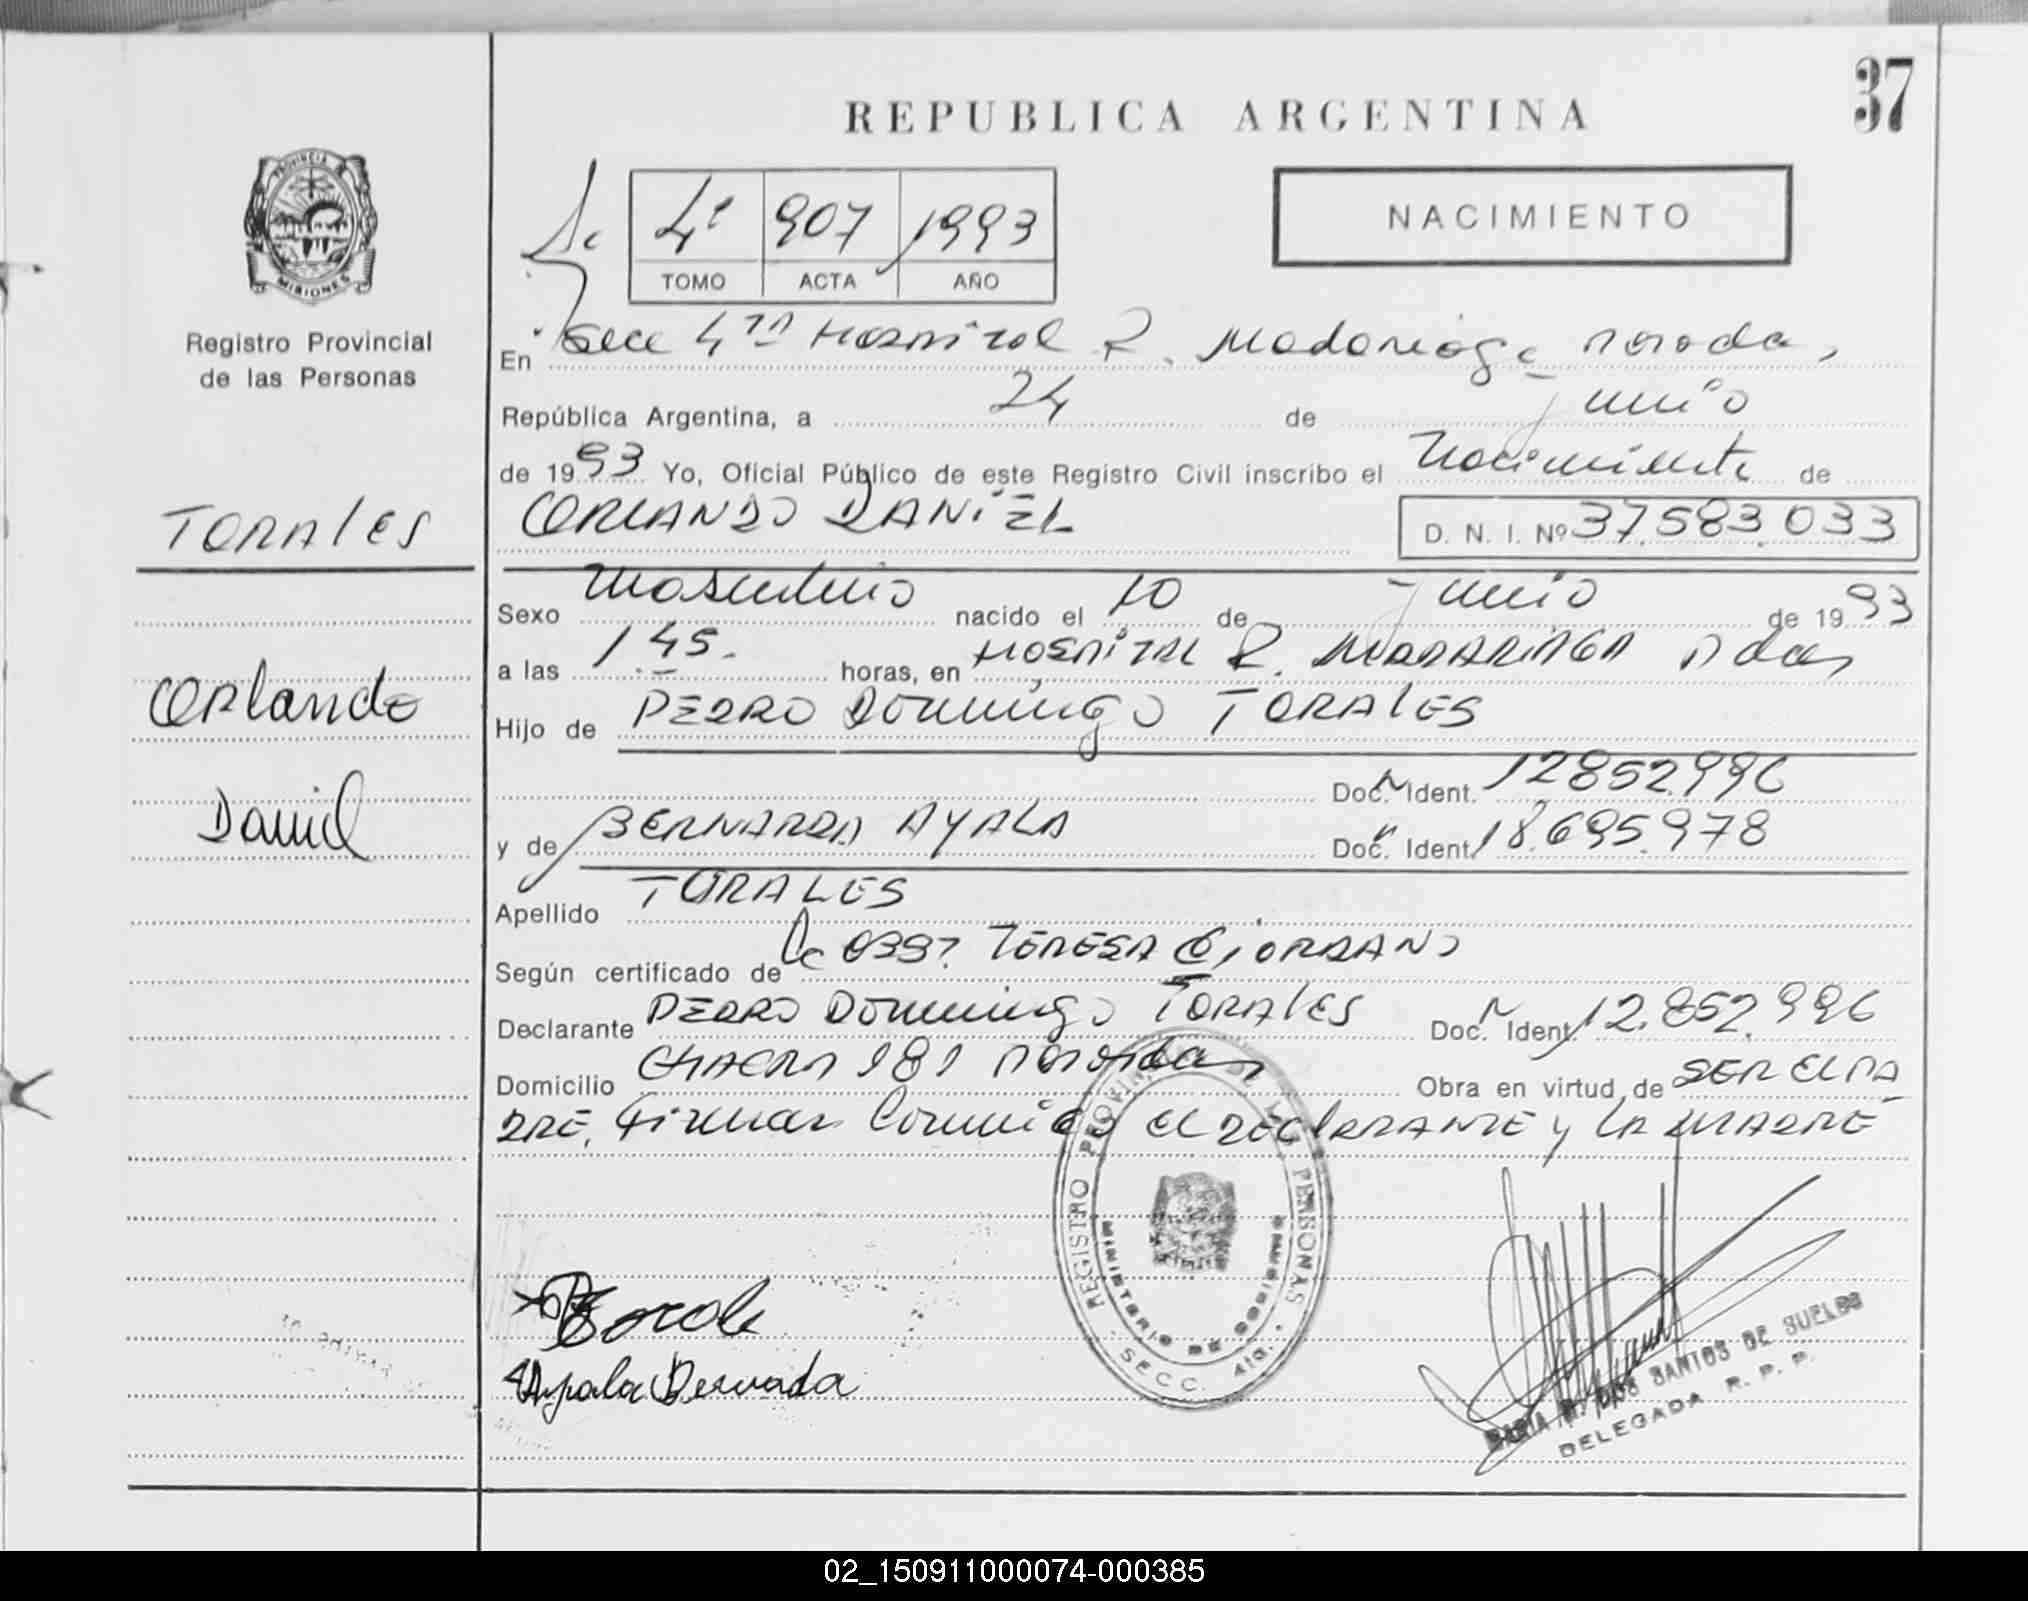 37
REPUBLICA ARGENTINA
PROVINCIA
MISIONES
Registro Provincial
de las Personas
4º 907 1993
TOMO ACTA AÑO
NACIMIENTO
En Secc 4ta Hospital R. Madariaga Posadas,
República Argentina, a 24 de junio
de 1993 Yo, Oficial Público de este Registro Civil inscribo el Nacimiento de
TORALES
ORLANDO DANIEL D. N. I. Nº 37.583.033
Sexo Masculino nacido el 10 de junio de 1993
a las 1.45. horas, en HOSPITAL R. MADARIAGA Pdas
Orlando
Hijo de PEDRO DOMINGO TORALES
Doc. Ident. 12852996
Daniel
y de BERNARDA AYALA Doc. Ident. 18.695.978
Apellido TORALES
Según certificado de la OBST. TERESA GIORDANO
Declarante PEDRO DOMINGO TORALES Doc. Ident. 12.852.996
Domicilio CHACRA 181 Posadas Obra en virtud de SER EL PA
DRE, Firman Conmigo EL DECLARANTE y LA MADRE
REGISTRO PROVINCIAL DE LAS PERSONAS
MINISTERIO DE GOBIERNO
SECC. 4ta.
Ayala Bernarda
MARIA DOS SANTOS DE SUELDO
DELEGADA R. P. P.
02_150911000074-000385